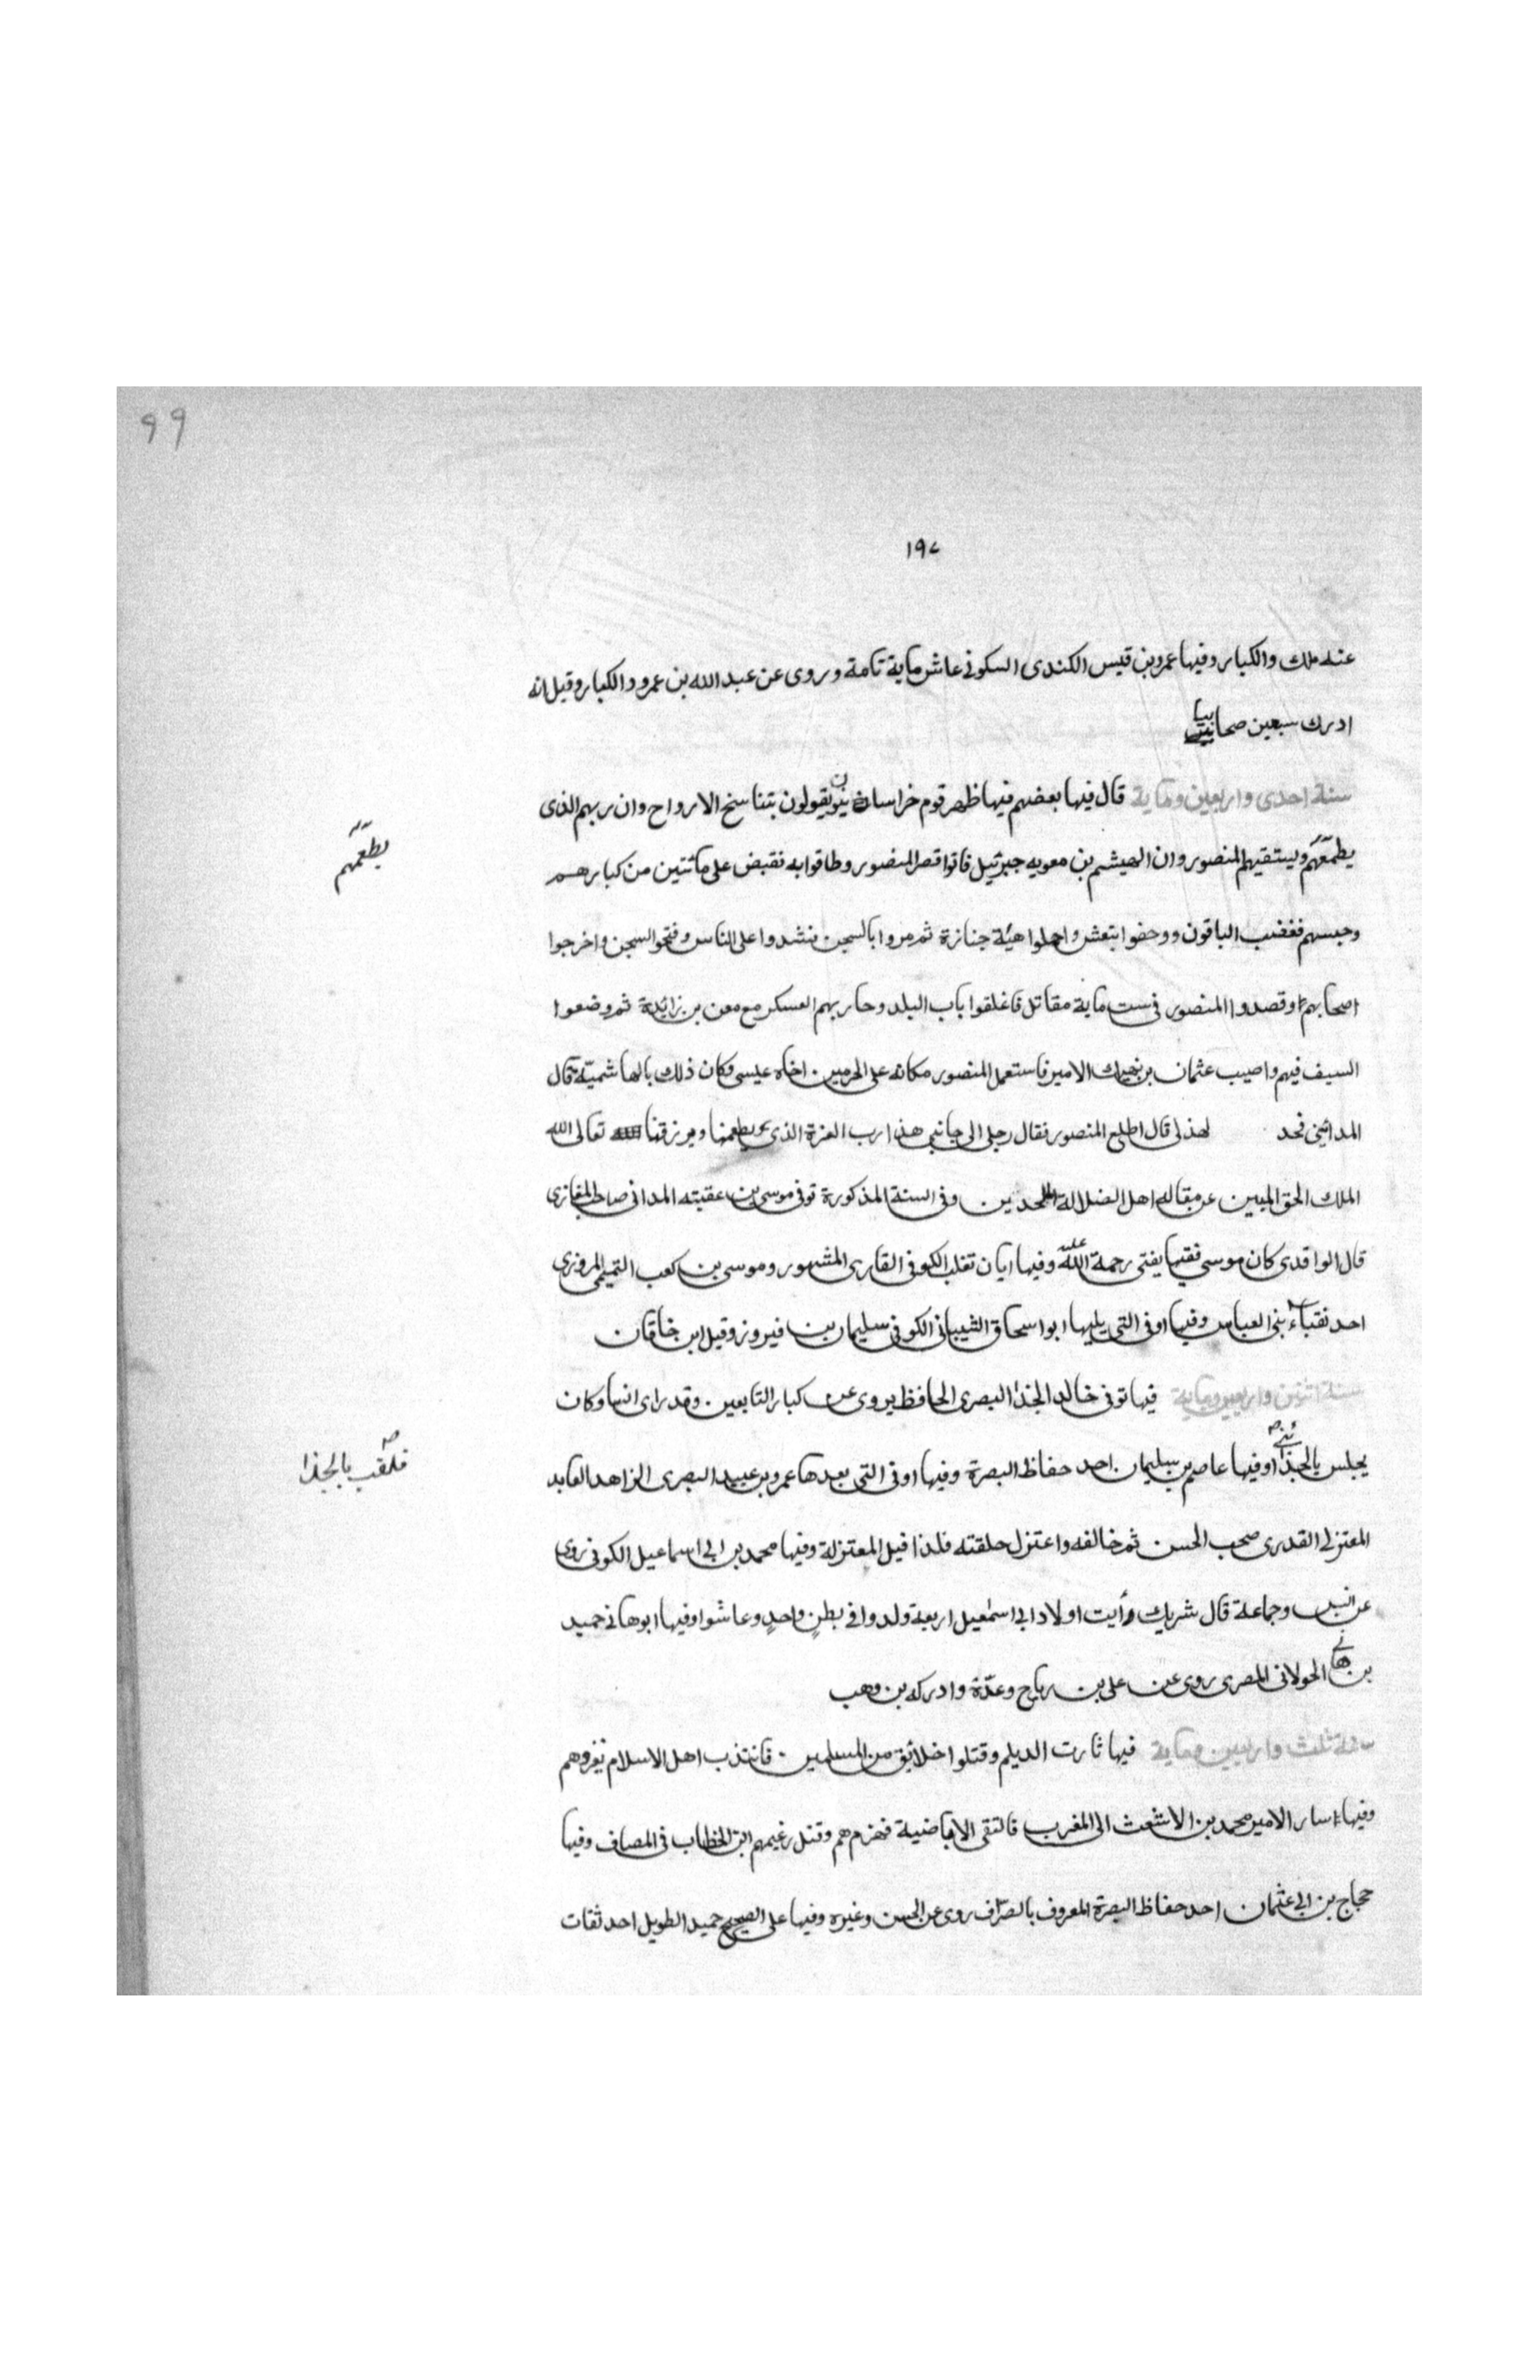 99
١٩٧
عنه ملك والكبار وفيها عمرو بن قيس الكندى السكونى عاش ماية تامة وروى عن عبد الله بن عمرو والكبار وقيل انه
ادرك سبعين صحابيا
سنة احدى واربعين وماية قال فيها بعضهم فيها ظهر قوم خراسانيون يقولون بتناسخ الارواح وان ربهم الذى
يطعمهم ويستقيهم المنصور وان الهيثم بن معويه جبرئيل فاتوا قصر المنصور وطافوا به فقبض على مائتين من كبارهم
يطعمهم
وحبسهم فغضب الباقون ووحفوا بنعش واحملوا هيئة جنازة ثم مروا بالسجن فشدوا على الناس وفتحوا السجن واخرجوا
اصحابهم وقصدوا المنصور فى ست ماية مقاتل فاغلقوا باب البلد وحاربهم العسكر مع معن بن زائدة ثم وضعوا
السيف فيهم واصيب عثمان بن نهيك الامير فاستعمل المنصور مكانه على الحرمين اخاه عيسى وكان ذلك بالهاشمية قال
المدائنى فحد لهذلى قال اطلع المنصور فقال رجل الى جانبى هذا رب العزة الذى يطعمنا ويرزقنا تعالى الله
الملك الحق المبين عن مقاله اهل الضلالة الملحدين وفى السنة المذكورة توفى موسى بن عقبته المدانى صاحب المغازى
قال الواقدى كان موسى فقيها يفتى رحمة الله عليه وفيها ابان تغلب الكوفى القارى المشهور وموسى بن كعب التميمى المروزى
احد نقباء بنى العباس وفيها اوفى التى يليها ابو اسحاق الشيبانى الكوفى سليمان بن فيروز وقيل ابن خاقان
سنة اثنتين واربعين وماية فيها توفى خالد الحذا البصرى الحافظ يروى عن كبار التابعين وقد راى انسا وكان
يجلس بالحذائين وفيها عاصم بن سليمان احد حفاظ البصرة وفيها اوفى التى بعدها عمرو بن عبيد البصرى الزاهد العابد
فلقب بالحذا
المعتزلى القدرى صحب الحسن ثم خالفه واعتزل حلقته فلذا قيل المعتزلة وفيها محمد بن ابى اسماعيل الكوفى روى
عن انس وجماعة قال شريك رأيت اولاد ابى اسمعيل اربعة ولدوا فى بطنٍ واحدٍ وعاشوا وفيها ابو هانى حميد
بن هانى الخولانى المصرى روى عن على بن رباح وعدّة وادركه بن وهب
سنة ثلث واربعين وماية فيها ثارت الديلم وقتلوا خلائق من المسلمين فانتدب اهل الاسلام نغزوهم
وفيها سار الامير محمد بن الاشعث الى المغرب فالتقى الاباضية فهزمهم وقتل زعيمهم ابن الخطاب فى المصاف وفيها
حجاج بن ابى عثمان احد حفاظ البصرة المعروف بالصرّاف روى عن الحسن وغيره وفيها على الصحيح حميد الطويل احد ثقات